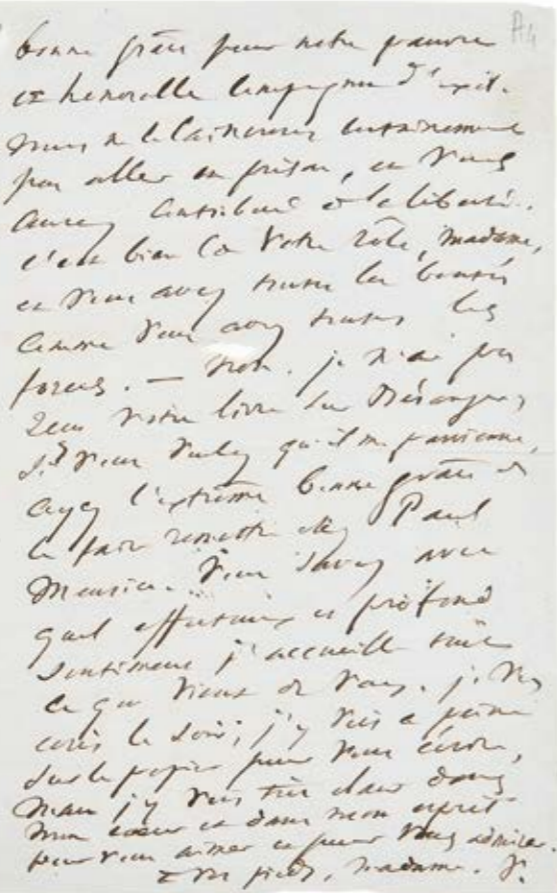 A4
bonne grâce pour notre pauvre
et honorable compagnie d'exil.
nous ne le laisserons certainement
pas aller en prison, et vous
aurez contribué à la liberté.
c'est bien là votre rôle, madame,
et vous avez toutes les bontés
comme vous avez toutes les
forces. — Non. je n'ai pas
reçu votre livre sur Béranger,
si vous voulez qu'il me parvienne,
ayez l'extrême bonne grâce de
le faire remettre chez Paul
Meurice. Vous savez avec
quel affectueux et profond
sentiment j'accueille tout
ce qui vient de vous. je vous
écris le soir; j'y vois à peine
sur le papier pour vous écrire,
mais j'y vois très clair dans
mon cœur et dans mon esprit
pour vous aimer et pour vous admirer.
à vos pieds, madame. V.